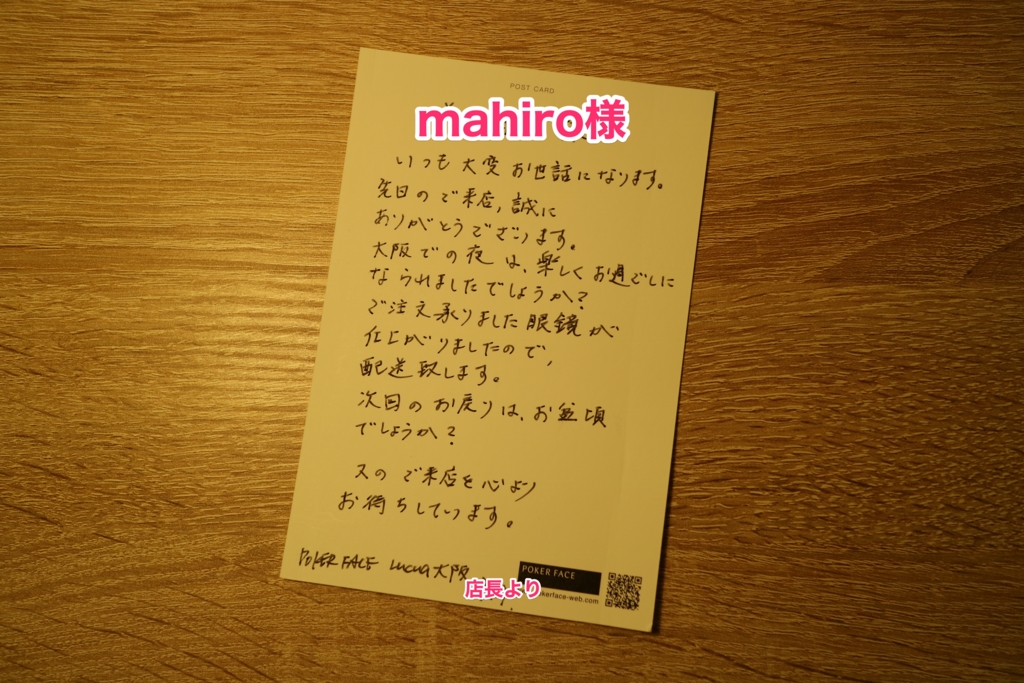 POST CARD
mahiro様
いつも大変お世話になります。
先日のご来店,誠に
ありがとうございます。
大阪での夜は、楽しくお過ごしに
なられましたでしょうか?
ご注文承りました眼鏡が
仕上がりましたので、
配送致します。
次回のお戻りは、お盆頃
でしょうか?
又のご来店を心より
お待ちしています。
POKER FACE LUCUA大阪
店長より
POKER FACE
kerface-web.com